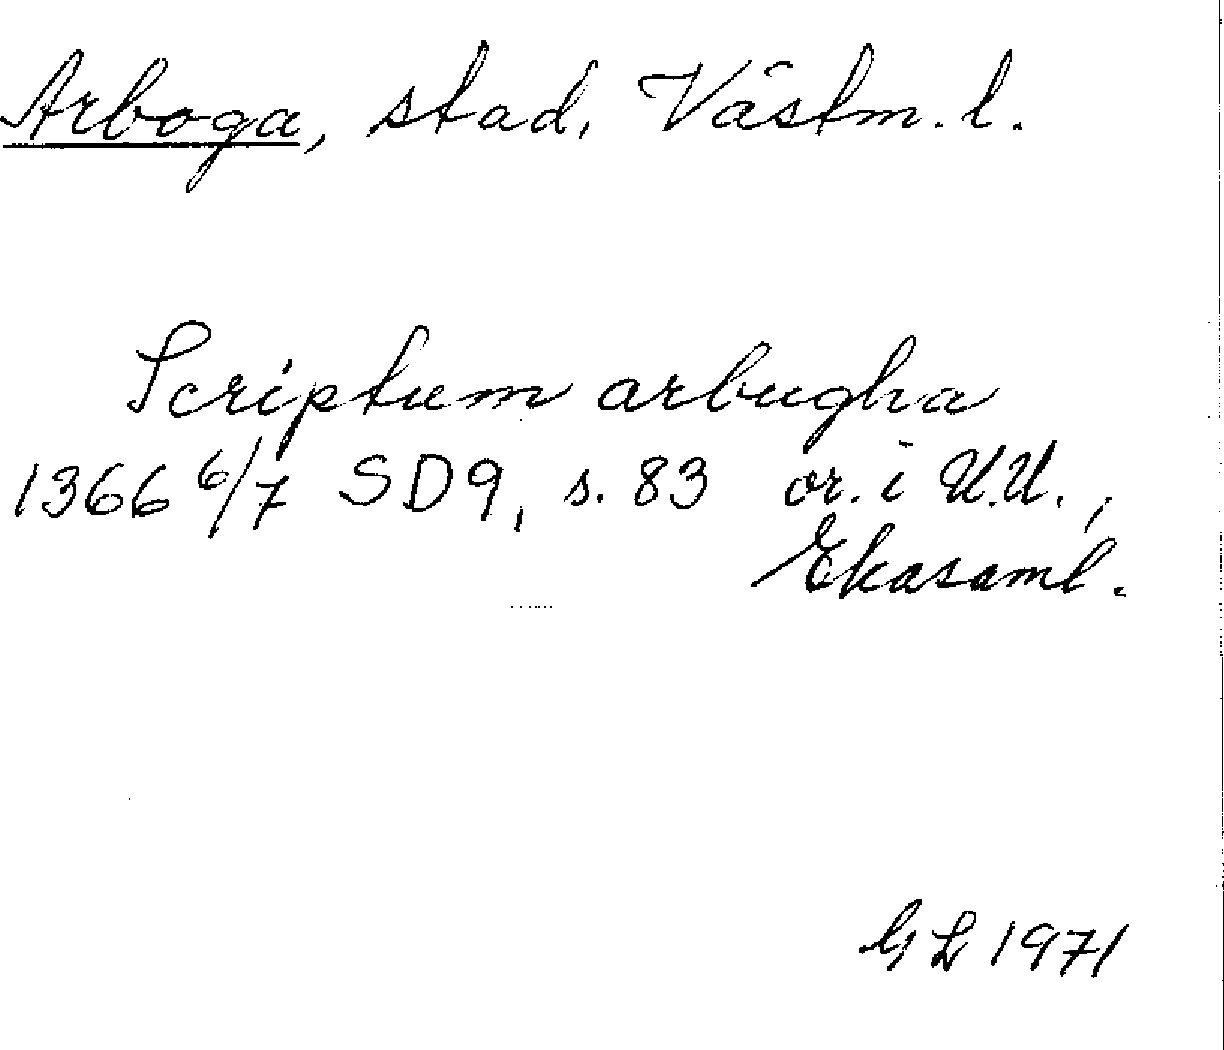 Arboga, stad, Västm. l.
Scriptum arbugha
1366 6/7 SD9, s. 83 or. i U.U.,
Ekasaml.
GL 1971